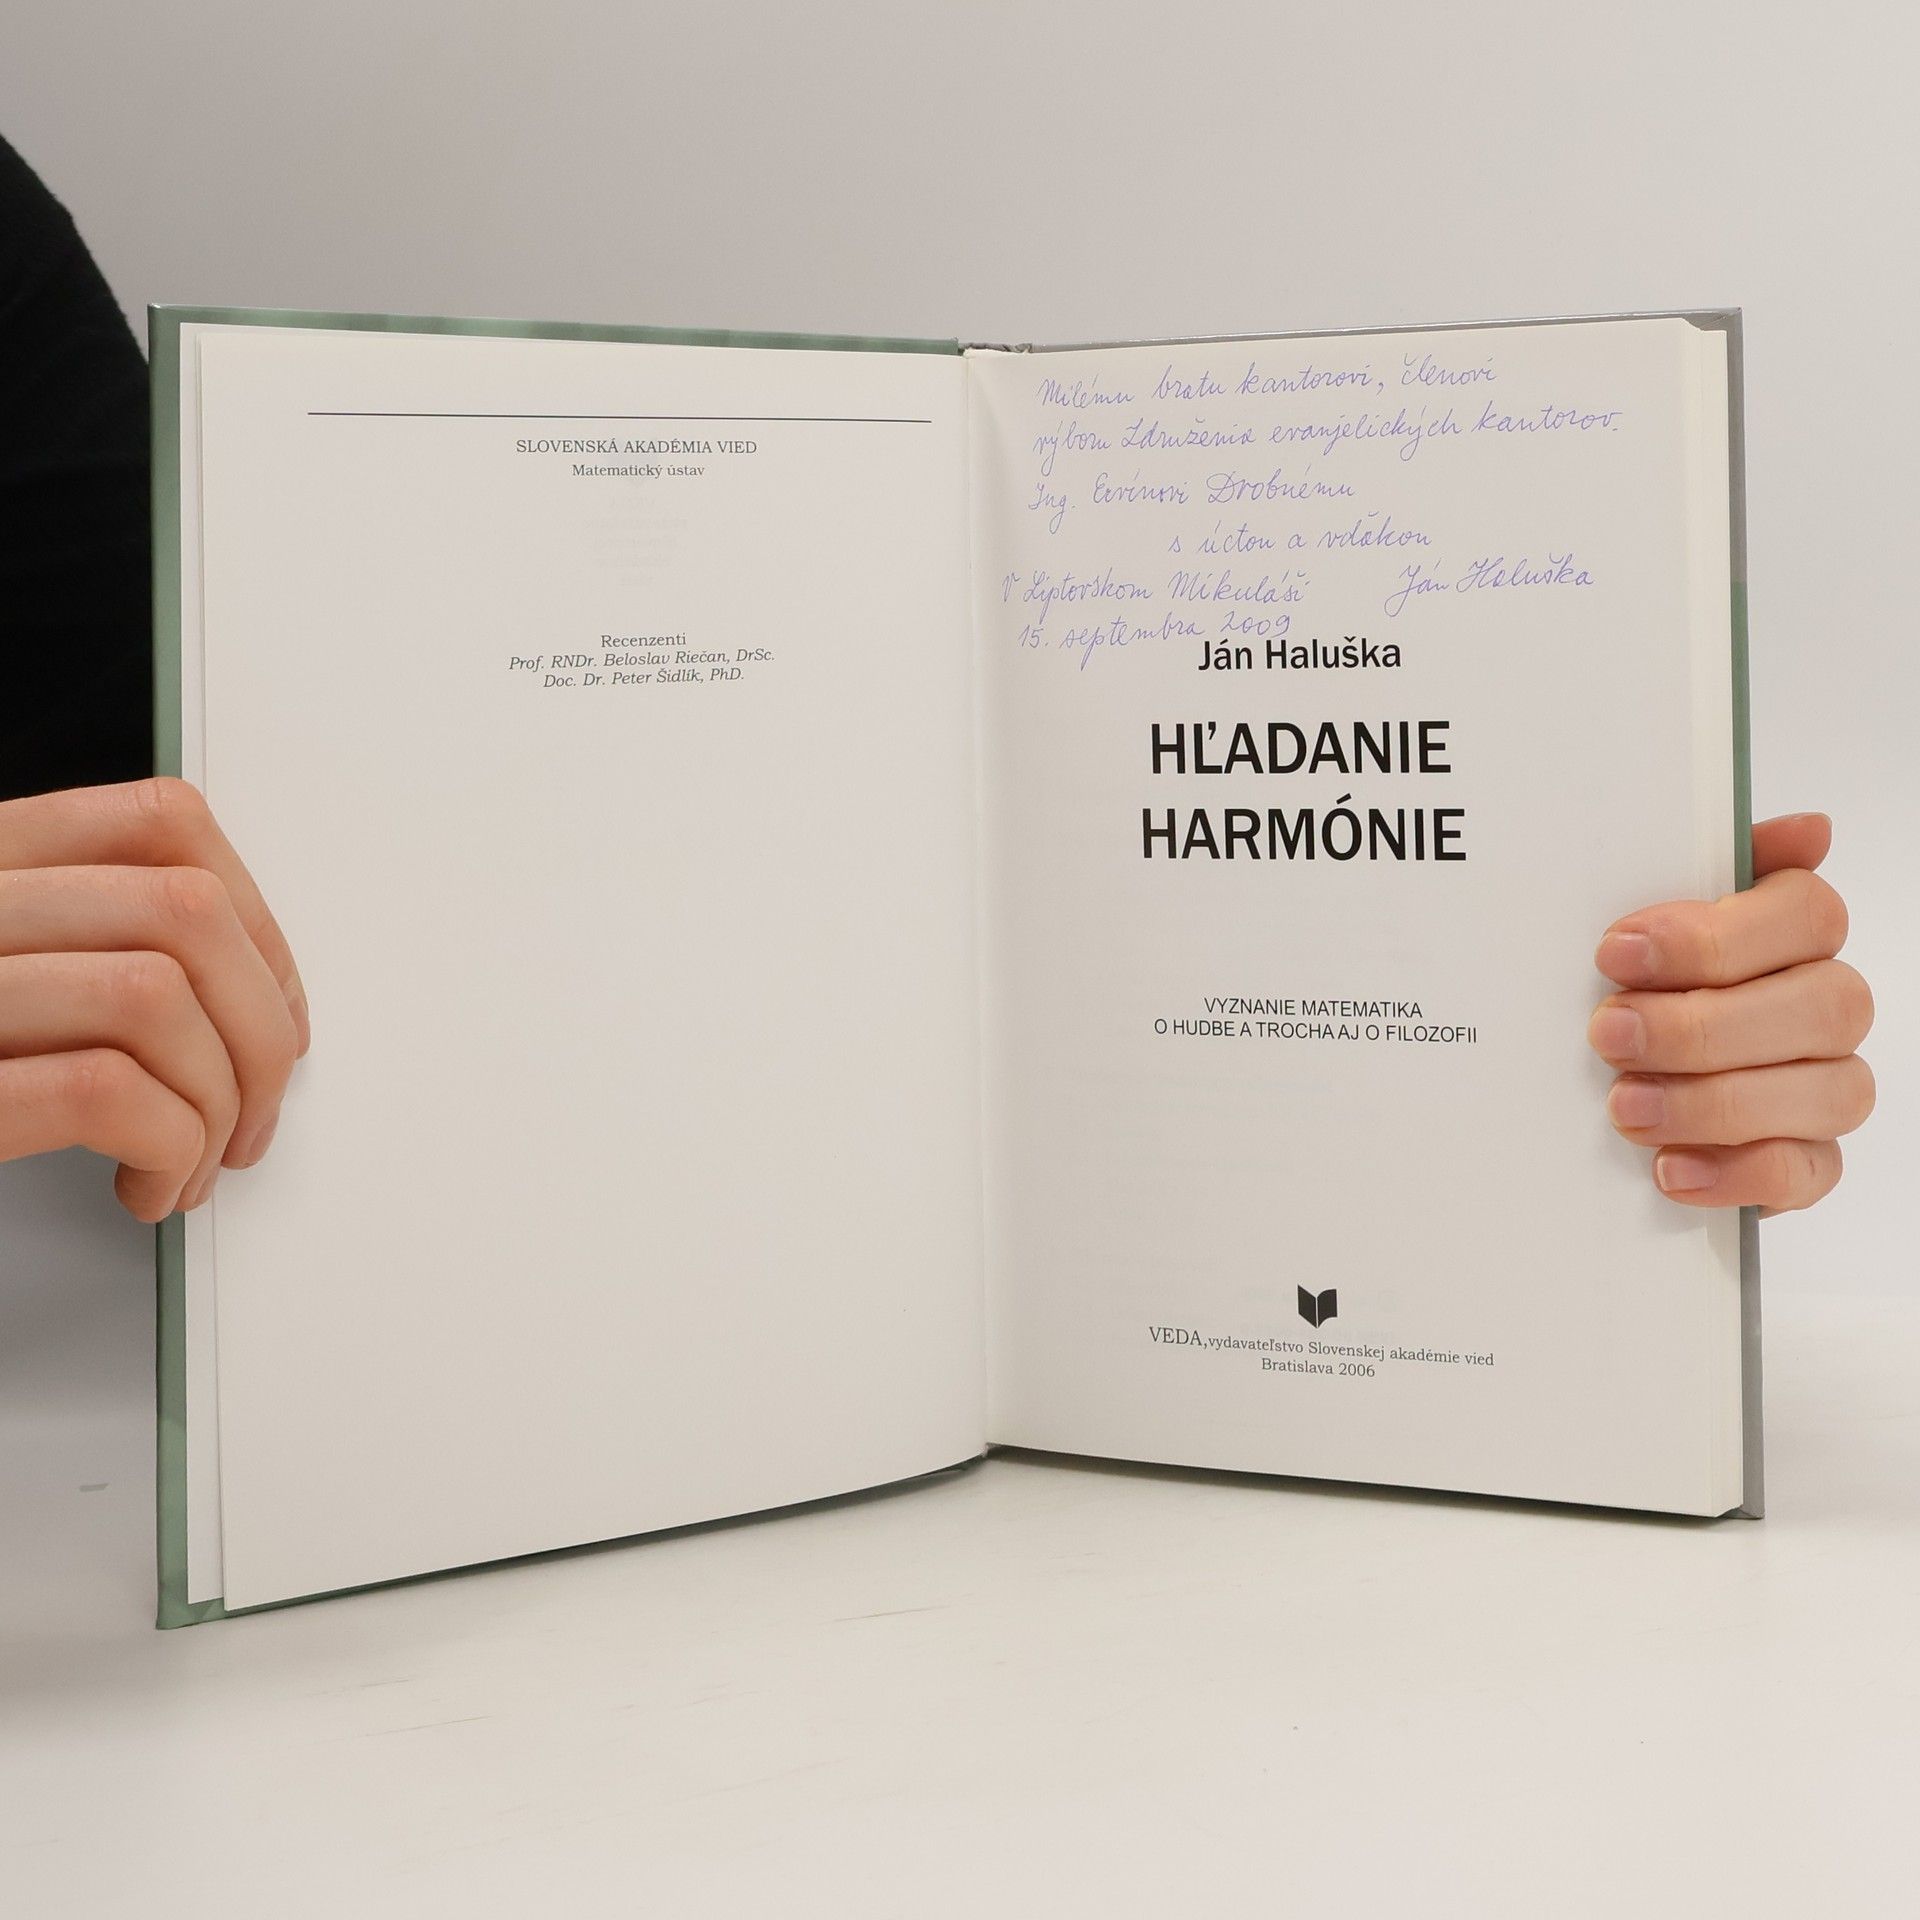 SLOVENSKÁ AKADÉMIA VIED
Matematický ústav
Recenzenti
Prof. RNDr. Beloslav Riečan, DrSc.
Doc. Dr. Peter Šidlík, PhD.
Milému bratu kantorovi, členovi
výboru Združenia evanjelických kantorov.
Ing. Ervínovi Drobnému
s úctou a vďakou
V Liptovskom Mikuláši Ján Haluška
15. septembra 2009
Ján Haluška
HĽADANIE
HARMÓNIE
VYZNANIE MATEMATIKA
O HUDBE A TROCHA AJ O FILOZOFII
VEDA, vydavateľstvo Slovenskej akadémie vied
Bratislava 2006